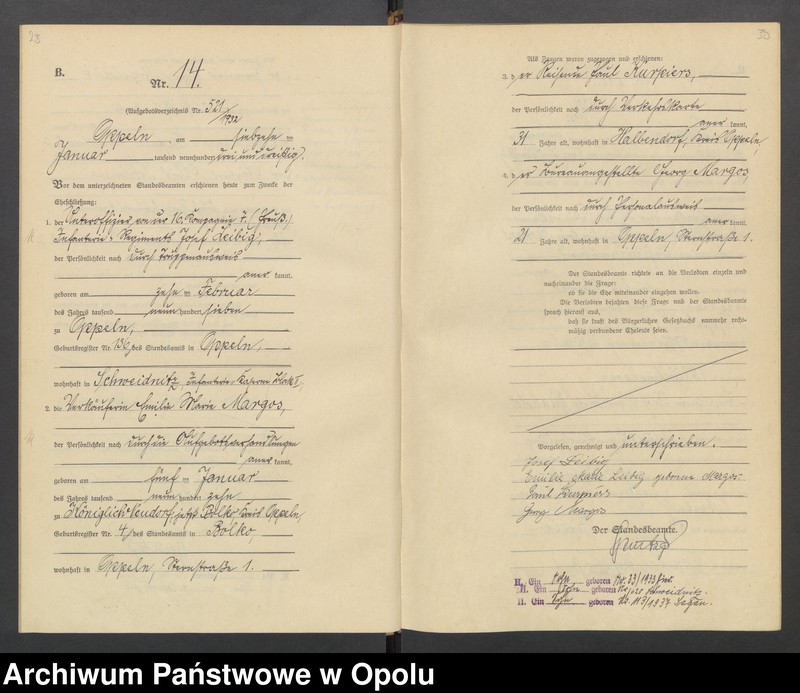 23
B.
Nr. 14.
(Aufgebotsverzeichnis Nr. 521/1932
Oppeln, am siebzehn ten
Januar tausend neunhundert drei und dreißig.
Vor dem unterzeichneten Standesbeamten erschienen heute zum Zwecke der
Eheschließung:
1. der Unteroffizier von der 16. Kompagnie 7. (Preuß.)
Infanterie-Regiments Josef Leibig,
der Persönlichkeit nach durch Truppenausweis
aner kannt,
geboren am zehn ten Februar
des Jahres tausend neun hundert sieben
zu Oppeln,
Geburtsregister Nr. 136 des Standesamts in Oppeln,
wohnhaft in Schweidnitz, Infanterie-Kaserne Block I,
2. die Verkäuferin Emilie Marie Margos,
der Persönlichkeit nach durch die Aufgebotsverhandlungen
aner kannt,
geboren am fünf ten Januar
des Jahres tausend neun hundert zehn
zu Königlich Neudorf, jetzt Bolko, Kreis Oppeln,
Geburtsregister Nr. 4, des Standesamts in Bolko,
wohnhaft in Oppeln, Sternstraße 1.
Als Zeugen waren zugezogen und erschienen:
3. der Reisende Paul Kurpiers,
der Persönlichkeit nach durch Verkehrskarte
aner kannt,
31 Jahre alt, wohnhaft in Halbendorf, Kreis Oppeln,
4. der Büroangestellte Georg Margos,
der Persönlichkeit nach durch Personalausweis
aner kannt,
21 Jahre alt, wohnhaft in Oppeln, Sternstraße 1.
Der Standesbeamte richtete an die Verlobten einzeln und
nacheinander die Frage:
ob sie die Ehe miteinander eingehen wollen.
Die Verlobten bejahten diese Frage und der Standesbeamte
sprach hierauf aus,
daß sie kraft des Bürgerlichen Gesetzbuchs nunmehr recht-
mäßig verbundene Eheleute seien.
Vorgelesen, genehmigt und unterschrieben.
Josef Leibig
Emilie Marie Leibig geborene Margos
Paul Kurpiers
Georg Margos
Der Standesbeamte.
H. Ein Sohn geboren Nr. 23/1933 hier.
H. Ein Sohn geboren Schweidnitz.
H. Ein Sohn geboren Nr. 113/1937 Sagan.
Archiwum Państwowe w Opolu